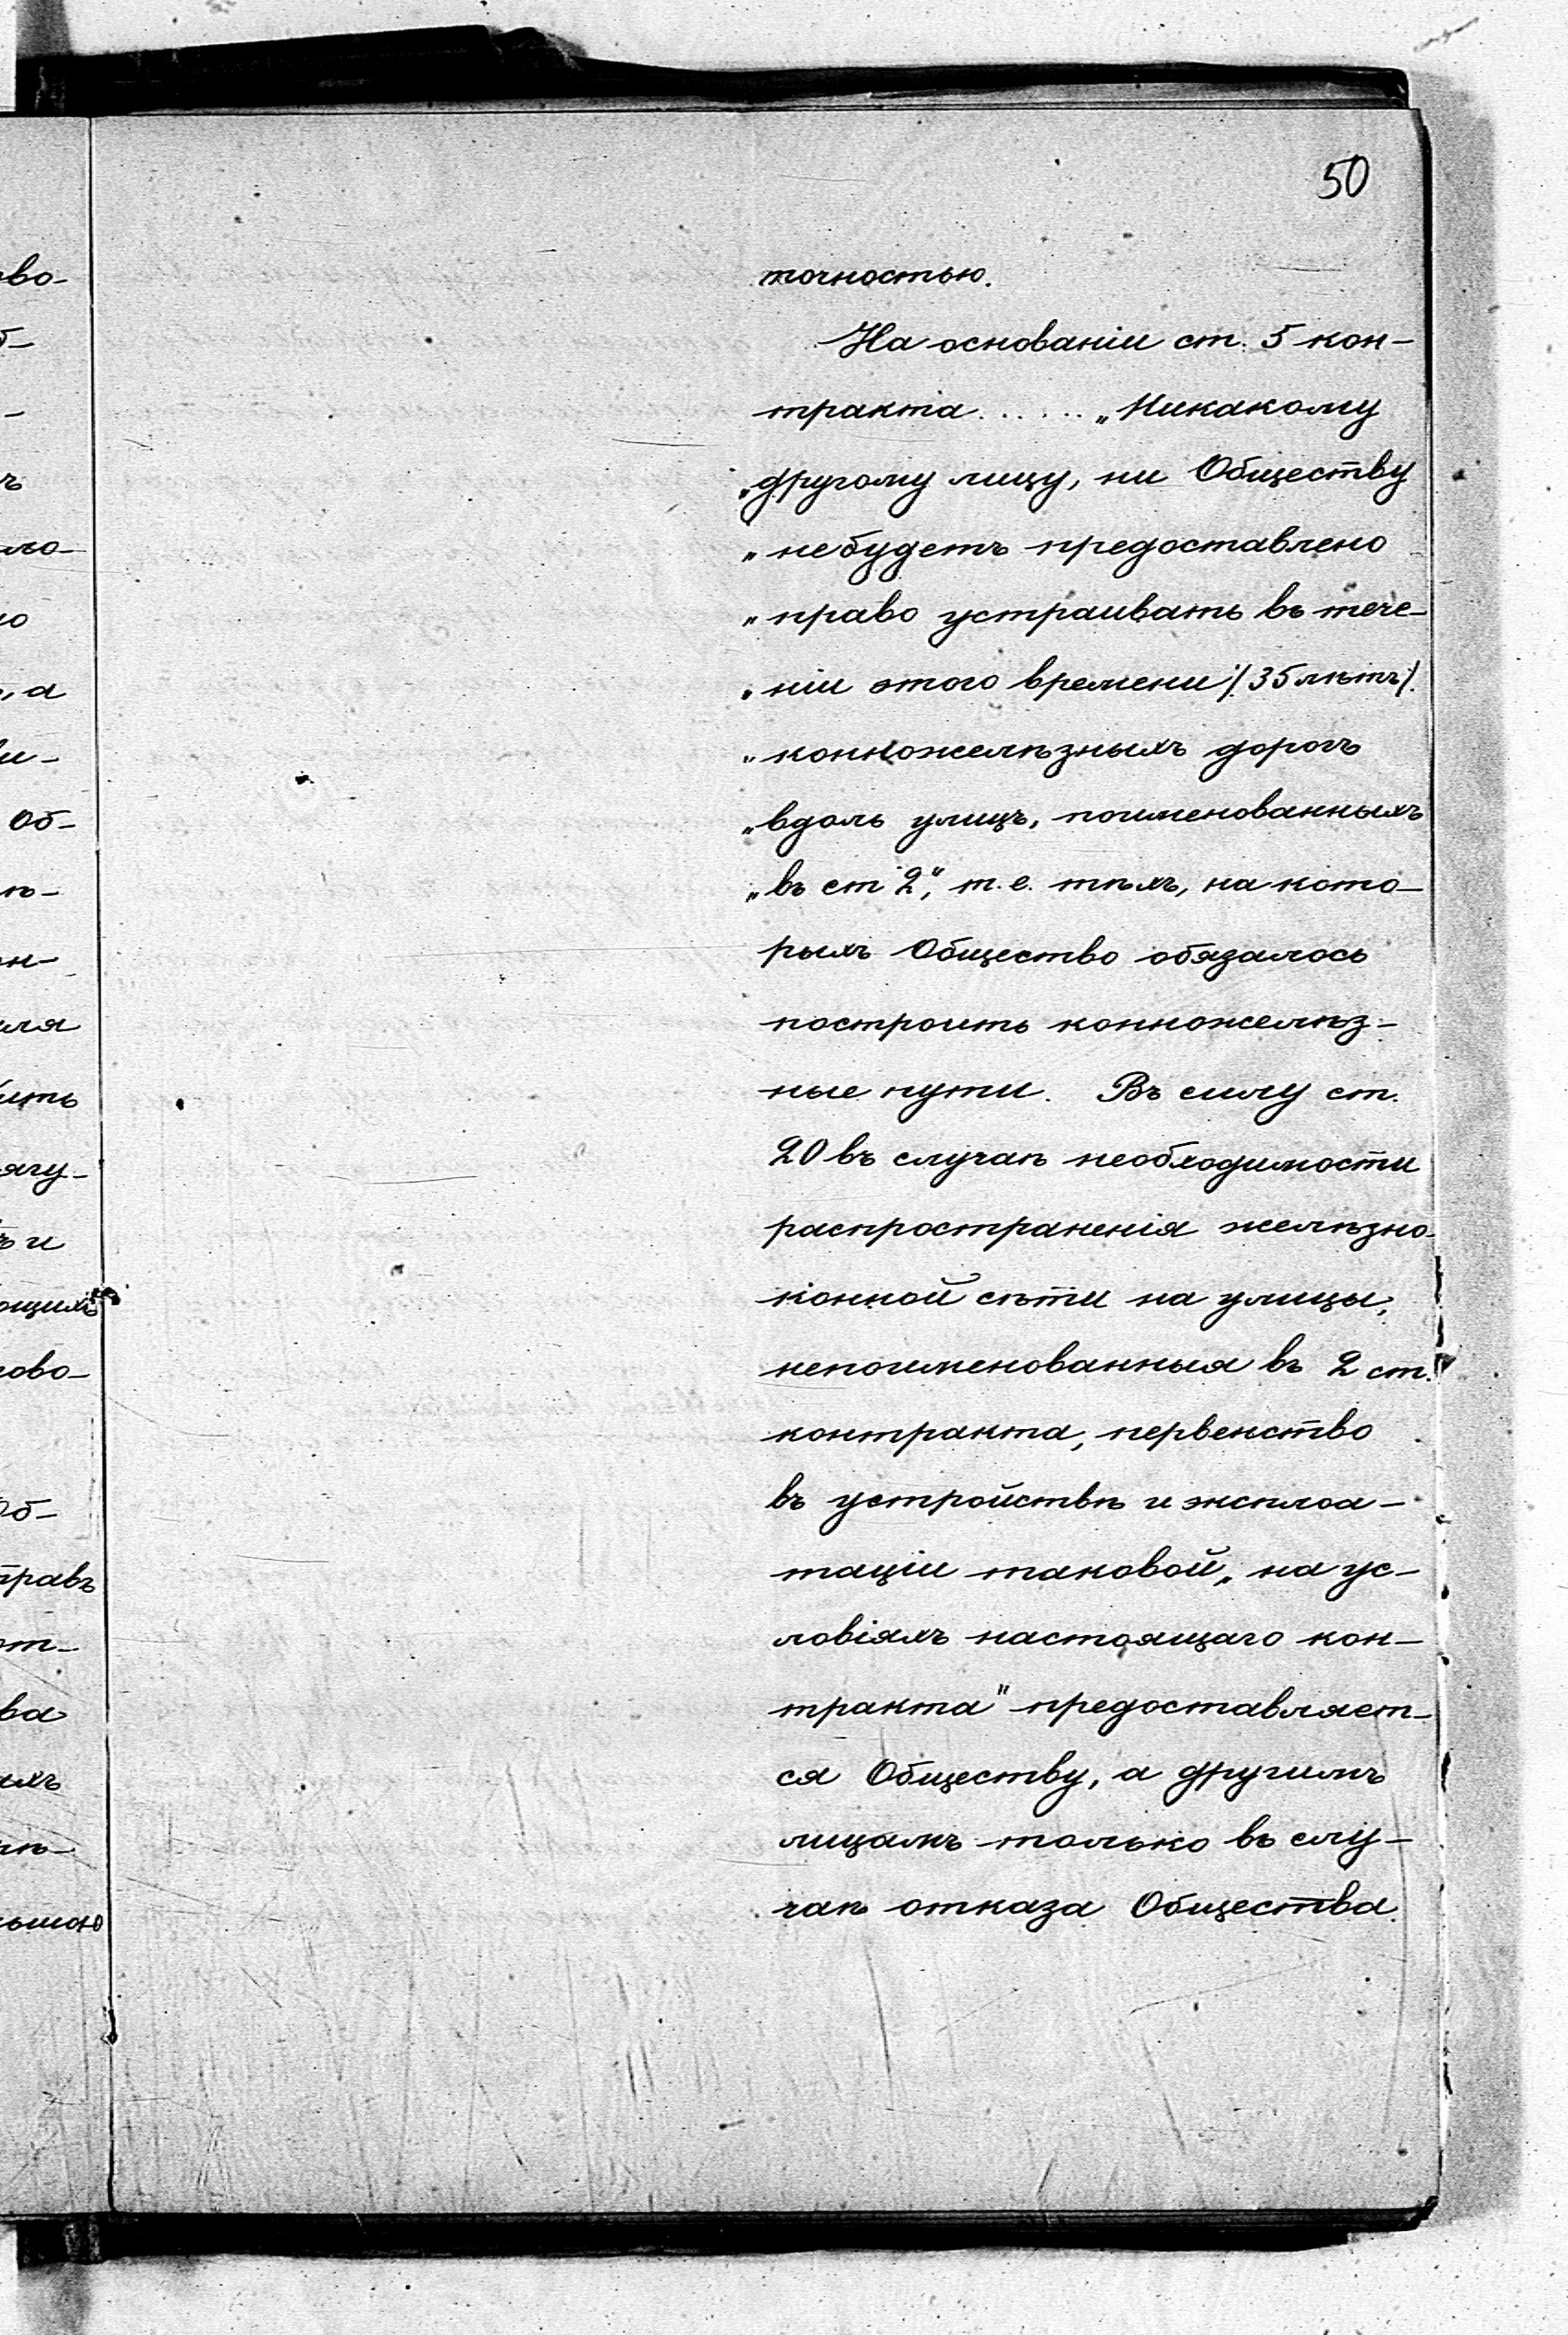 50
точностью.
На основаніи ст. 5 кон-
тракта ...... „Никакому
„другому лицу, ни Обществу
„небудетъ предоставлено
„право устраивать въ тече-
„ніи этого времени /:35 лѣтъ:/
„конножелѣзныхъ дорогъ
„вдоль улицъ, поименованныхъ
„въ ст 2", т.е. тѣхъ, на кото-
рыхъ Общество обязалось
построить конножелѣз-
ные пути. Въ силу ст.
20 въ случаѣ необходимости
распространенія желѣзно-
конной сѣти на улицы,
непоименованныя въ 2 ст.
контракта, первенство
въ устройствѣ и эксплоа-
таціи таковой „на ус-
ловіяхъ настоящаго кон-
тракта" предоставляет-
ся Обществу, а другимъ
лицамъ только въ слу-
чаѣ отказа Общества